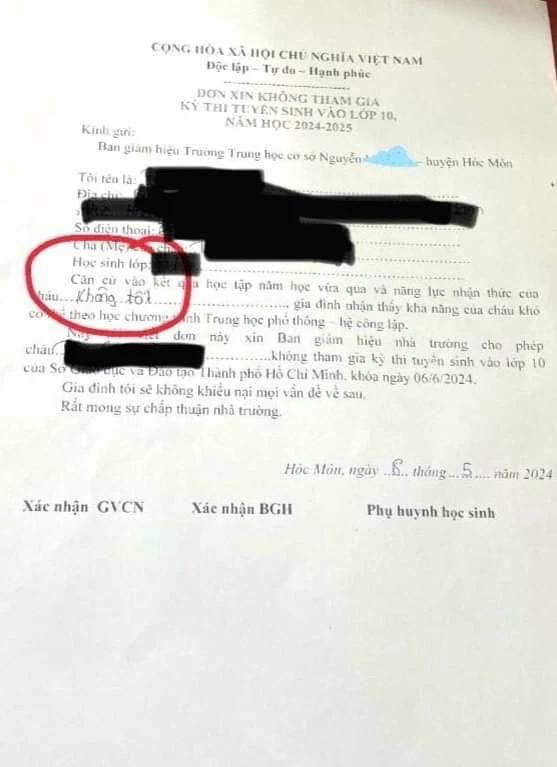 CỘNG HÒA XÃ HỘI CHỦ NGHĨA VIỆT NAM
Độc lập – Tự do – Hạnh phúc
ĐƠN XIN KHÔNG THAM GIA
KỲ THI TUYỂN SINH VÀO LỚP 10,
NĂM HỌC 2024-2025
Kính gửi:
Ban giám hiệu Trường Trung học cơ sở Nguyễn – huyện Hóc Môn
Tôi tên là:
Địa chỉ:
Số điện thoại:
Cha (Mẹ)
Học sinh lớp:
Căn cứ vào kết quả học tập năm học vừa qua và năng lực nhận thức của
cháu....không tốt......, gia đình nhận thấy khả năng của cháu khó
có thể theo học chương trình Trung học phổ thông – hệ công lập.
đơn này xin Ban giám hiệu nhà trường cho phép
cháu.......không tham gia kỳ thi tuyển sinh vào lớp 10
của Sở Giáo dục và Đào tạo Thành phố Hồ Chí Minh, khóa ngày 06/6/2024.
Gia đình tôi sẽ không khiếu nại mọi vấn đề về sau.
Rất mong sự chấp thuận nhà trường.
Hóc Môn, ngày ..8.. tháng...5.... năm 2024
Xác nhận GVCN Xác nhận BGH Phụ huynh học sinh